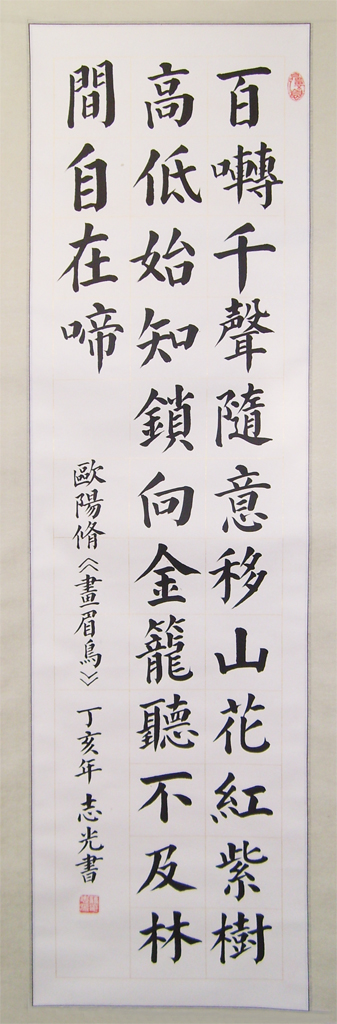 百囀千聲隨意移山花紅紫樹
高低始知鎖向金籠聽不及林
間自在啼
歐陽脩《畫眉鳥》 丁亥年 志光書